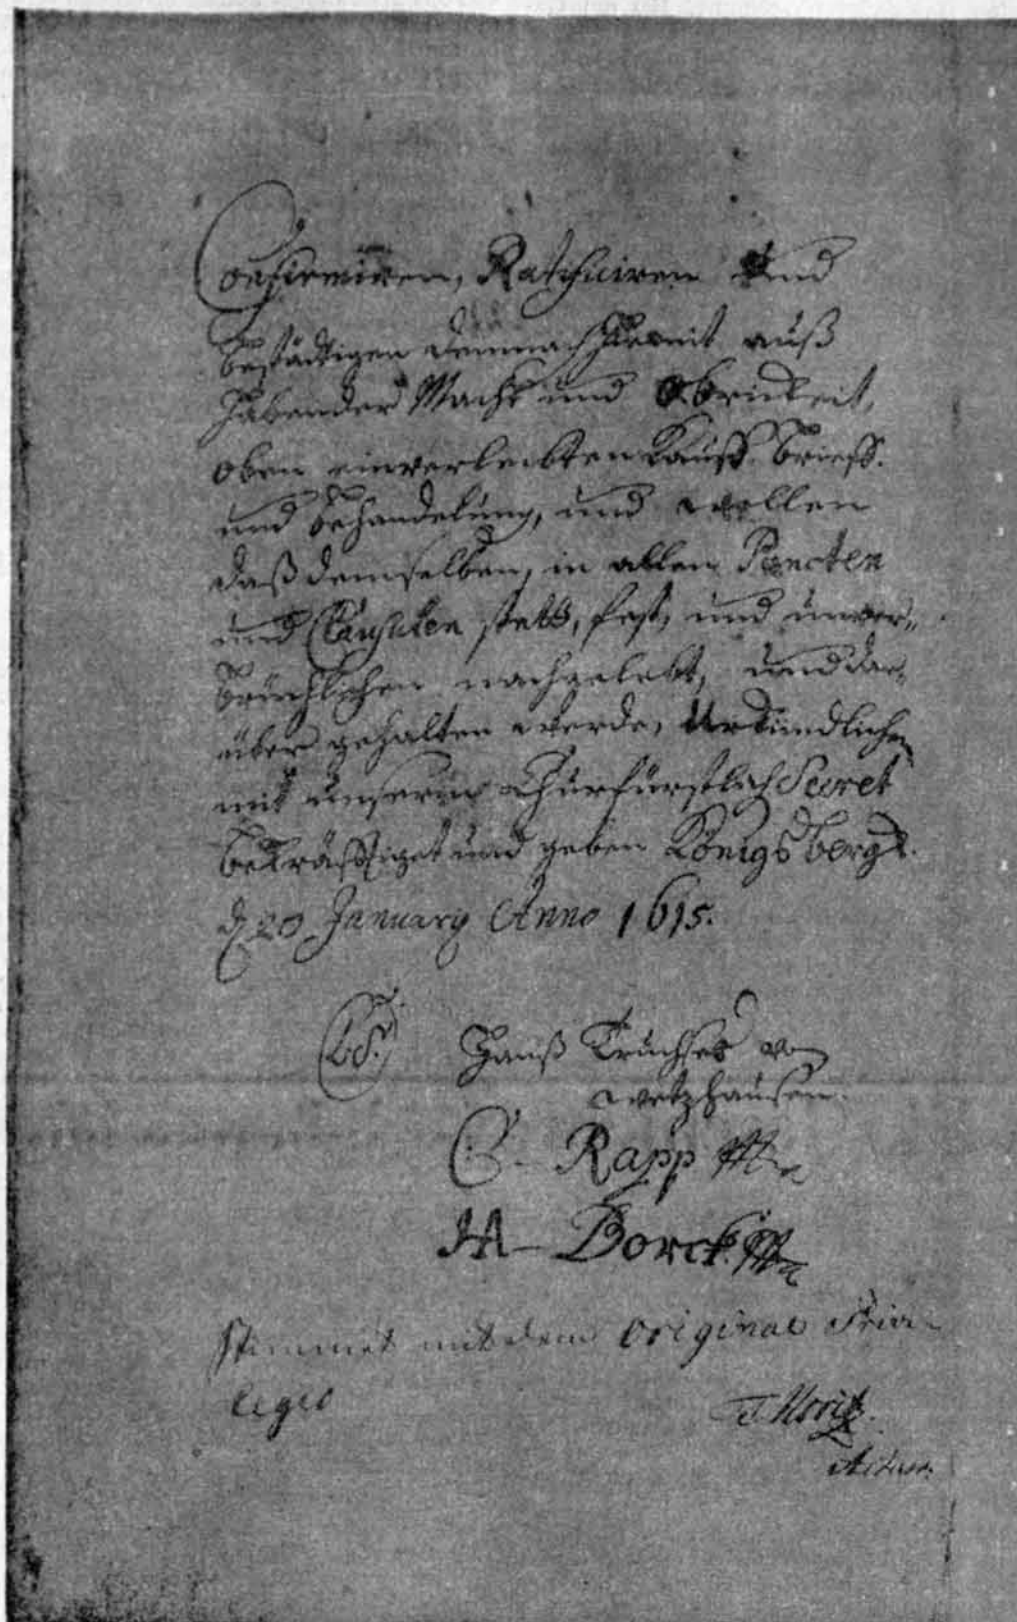 Confirmiren, Ratificiren Und
bestädtigen demnach hiermit auß
habender Macht und Obrickeit,
oben einverleibten Kauff-brieff.
und behandelung, und wollen
daß demselben, in allen Puncten
und Clausulen stett, fest, und unver„
brüchlichen nachgelebt, und dar„
über gehalten werde, Urkundlichen
mit unserm Churfürstlich Secret
bekräfftiget und geben Königsbergk.
d. 20 January Anno 1615.
(L.S.) Hanß Truchses von
Wetzhausen.
C. Rapp
Borck.
Stimmet mit dem Original Privi-
legio
Moritz.